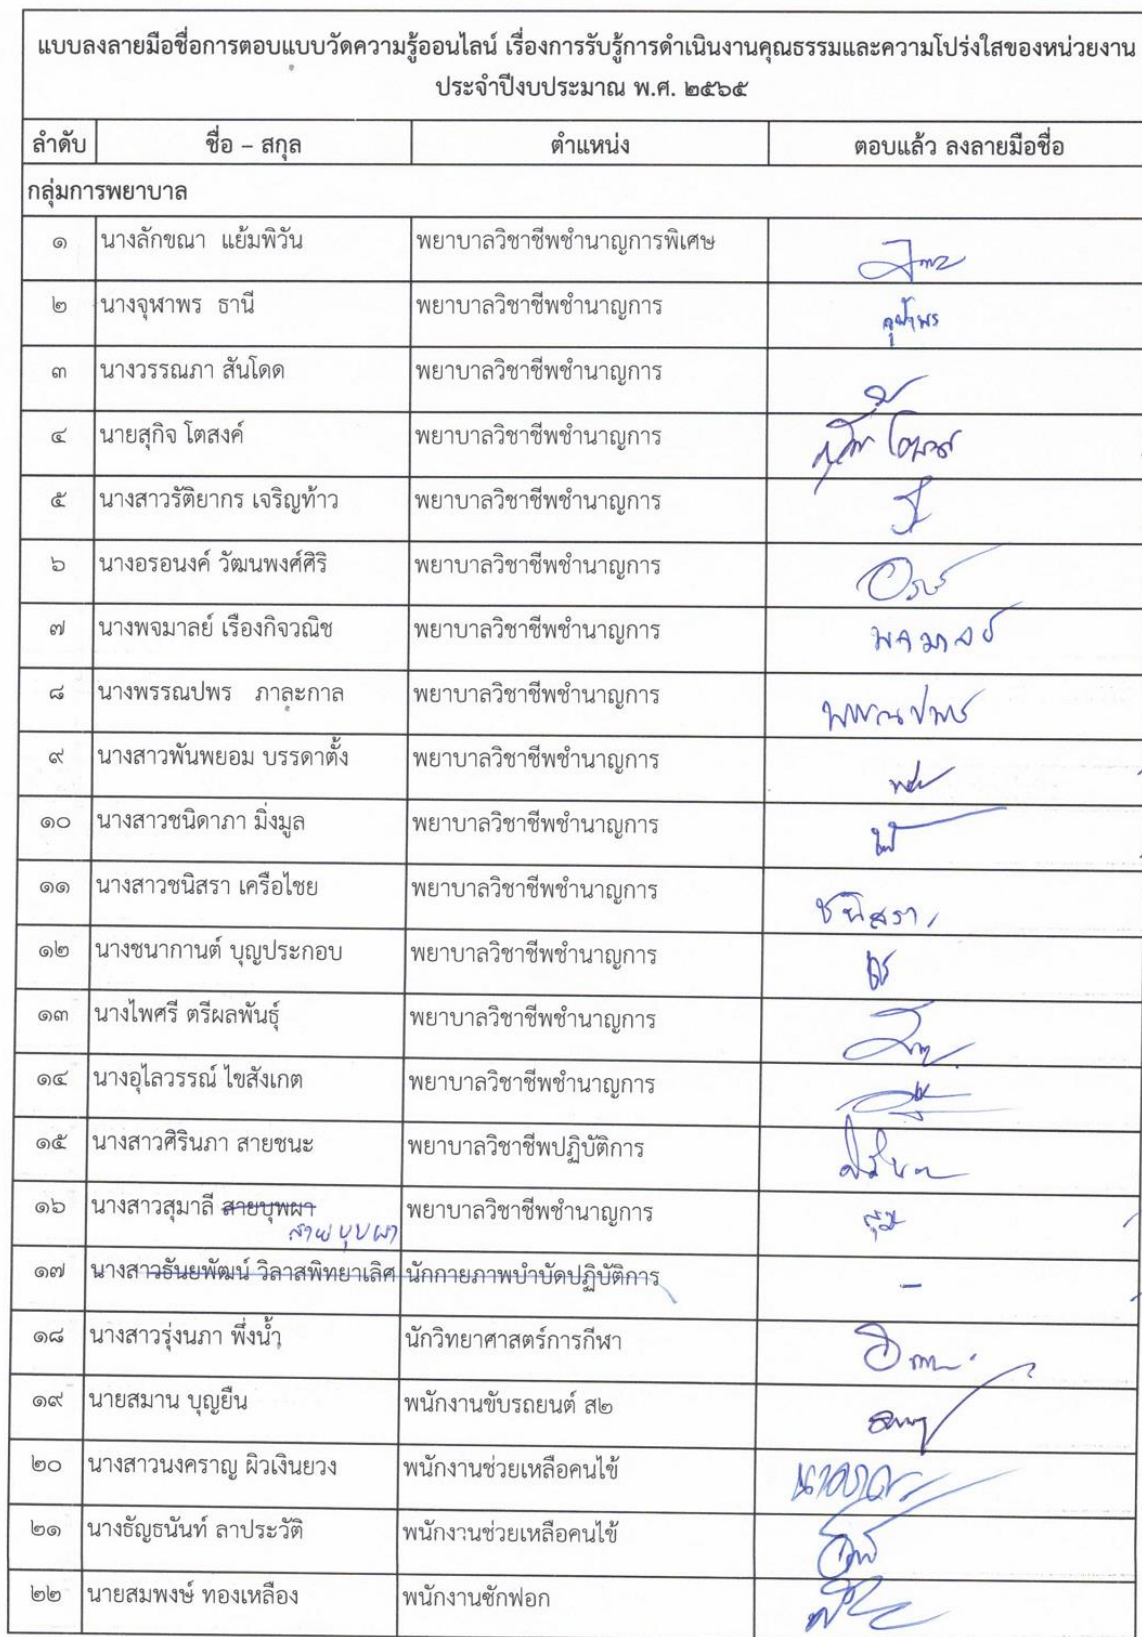 แบบลงลายมือชื่อการตอบแบบวัดความรู้ออนไลน์ เรื่องการรับรู้การดำเนินงานคุณธรรมและความโปร่งใสของหน่วยงาน
ประจำปีงบประมาณ พ.ศ. ๒๕๖๕
ลำดับ ชื่อ – สกุล ตำแหน่ง ตอบแล้ว ลงลายมือชื่อ
กลุ่มการพยาบาล
๑ นางลักขณา แย้มพิวัน พยาบาลวิชาชีพชำนาญการพิเศษ
๒ นางจุฬาพร ธานี พยาบาลวิชาชีพชำนาญการ จุฬาพร
๓ นางวรรณภา สันโดด พยาบาลวิชาชีพชำนาญการ
๔ นายสุกิจ โตสงค์ พยาบาลวิชาชีพชำนาญการ
๕ นางสาวรัติยากร เจริญท้าว พยาบาลวิชาชีพชำนาญการ
๖ นางอรอนงค์ วัฒนพงศ์ศิริ พยาบาลวิชาชีพชำนาญการ
๗ นางพจมาลย์ เรืองกิจวณิช พยาบาลวิชาชีพชำนาญการ พจมาลย์
๘ นางพรรณปพร ภาละกาล พยาบาลวิชาชีพชำนาญการ พรรณปพร
๙ นางสาวพันพยอม บรรดาตั้ง พยาบาลวิชาชีพชำนาญการ
๑๐ นางสาวชนิดาภา มิ่งมูล พยาบาลวิชาชีพชำนาญการ
๑๑ นางสาวชนิสรา เครือไชย พยาบาลวิชาชีพชำนาญการ ชนิสรา
๑๒ นางชนากานต์ บุญประกอบ พยาบาลวิชาชีพชำนาญการ
๑๓ นางไพศรี ตรีผลพันธุ์ พยาบาลวิชาชีพชำนาญการ
๑๔ นางอุไลวรรณ์ ไขสังเกต พยาบาลวิชาชีพชำนาญการ
๑๕ นางสาวศิรินภา สายชนะ พยาบาลวิชาชีพปฏิบัติการ
๑๖ นางสาวสุมาลี สายบุพผา พยาบาลวิชาชีพชำนาญการ
สายบุบผา
๑๗ นางสาวธันยพัฒน์ วิลาสพิทยาเลิศ นักกายภาพบำบัดปฏิบัติการ -
๑๘ นางสาวรุ่งนภา พึ่งน้ำ นักวิทยาศาสตร์การกีฬา
๑๙ นายสมาน บุญยืน พนักงานขับรถยนต์ ส๒
๒๐ นางสาวนงคราญ ผิวเงินยวง พนักงานช่วยเหลือคนไข้
๒๑ นางธัญธนันท์ ลาประวัติ พนักงานช่วยเหลือคนไข้
๒๒ นายสมพงษ์ ทองเหลือง พนักงานซักฟอก